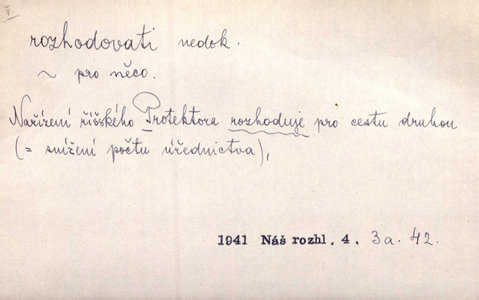 V
rozhodovati nedok.
~ pro něco.
Nařízení říšského Protektora rozhoduje pro cestu druhou
(= snížení počtu úřednictva),
1941 Náš rozhl. 4. 3a. 42.